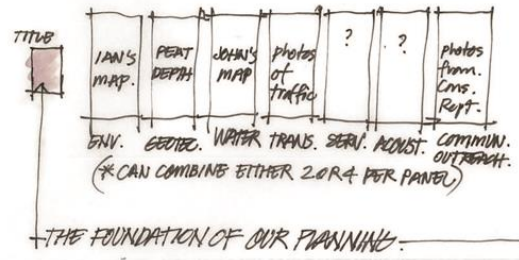 TITLE
IAN'S
MAP.
PEAT
DEPTH
JOHN'S
MAP
photos
of
traffic
?
?
photos
from
Cons.
Rept.
ENV. GEOTEC. WATER TRANS. SERV. ACOUST. COMMUN.
OUTREACH.
(* CAN COMBINE EITHER 2 OR 4 PER PANEL)
THE FOUNDATION OF OUR PLANNING.